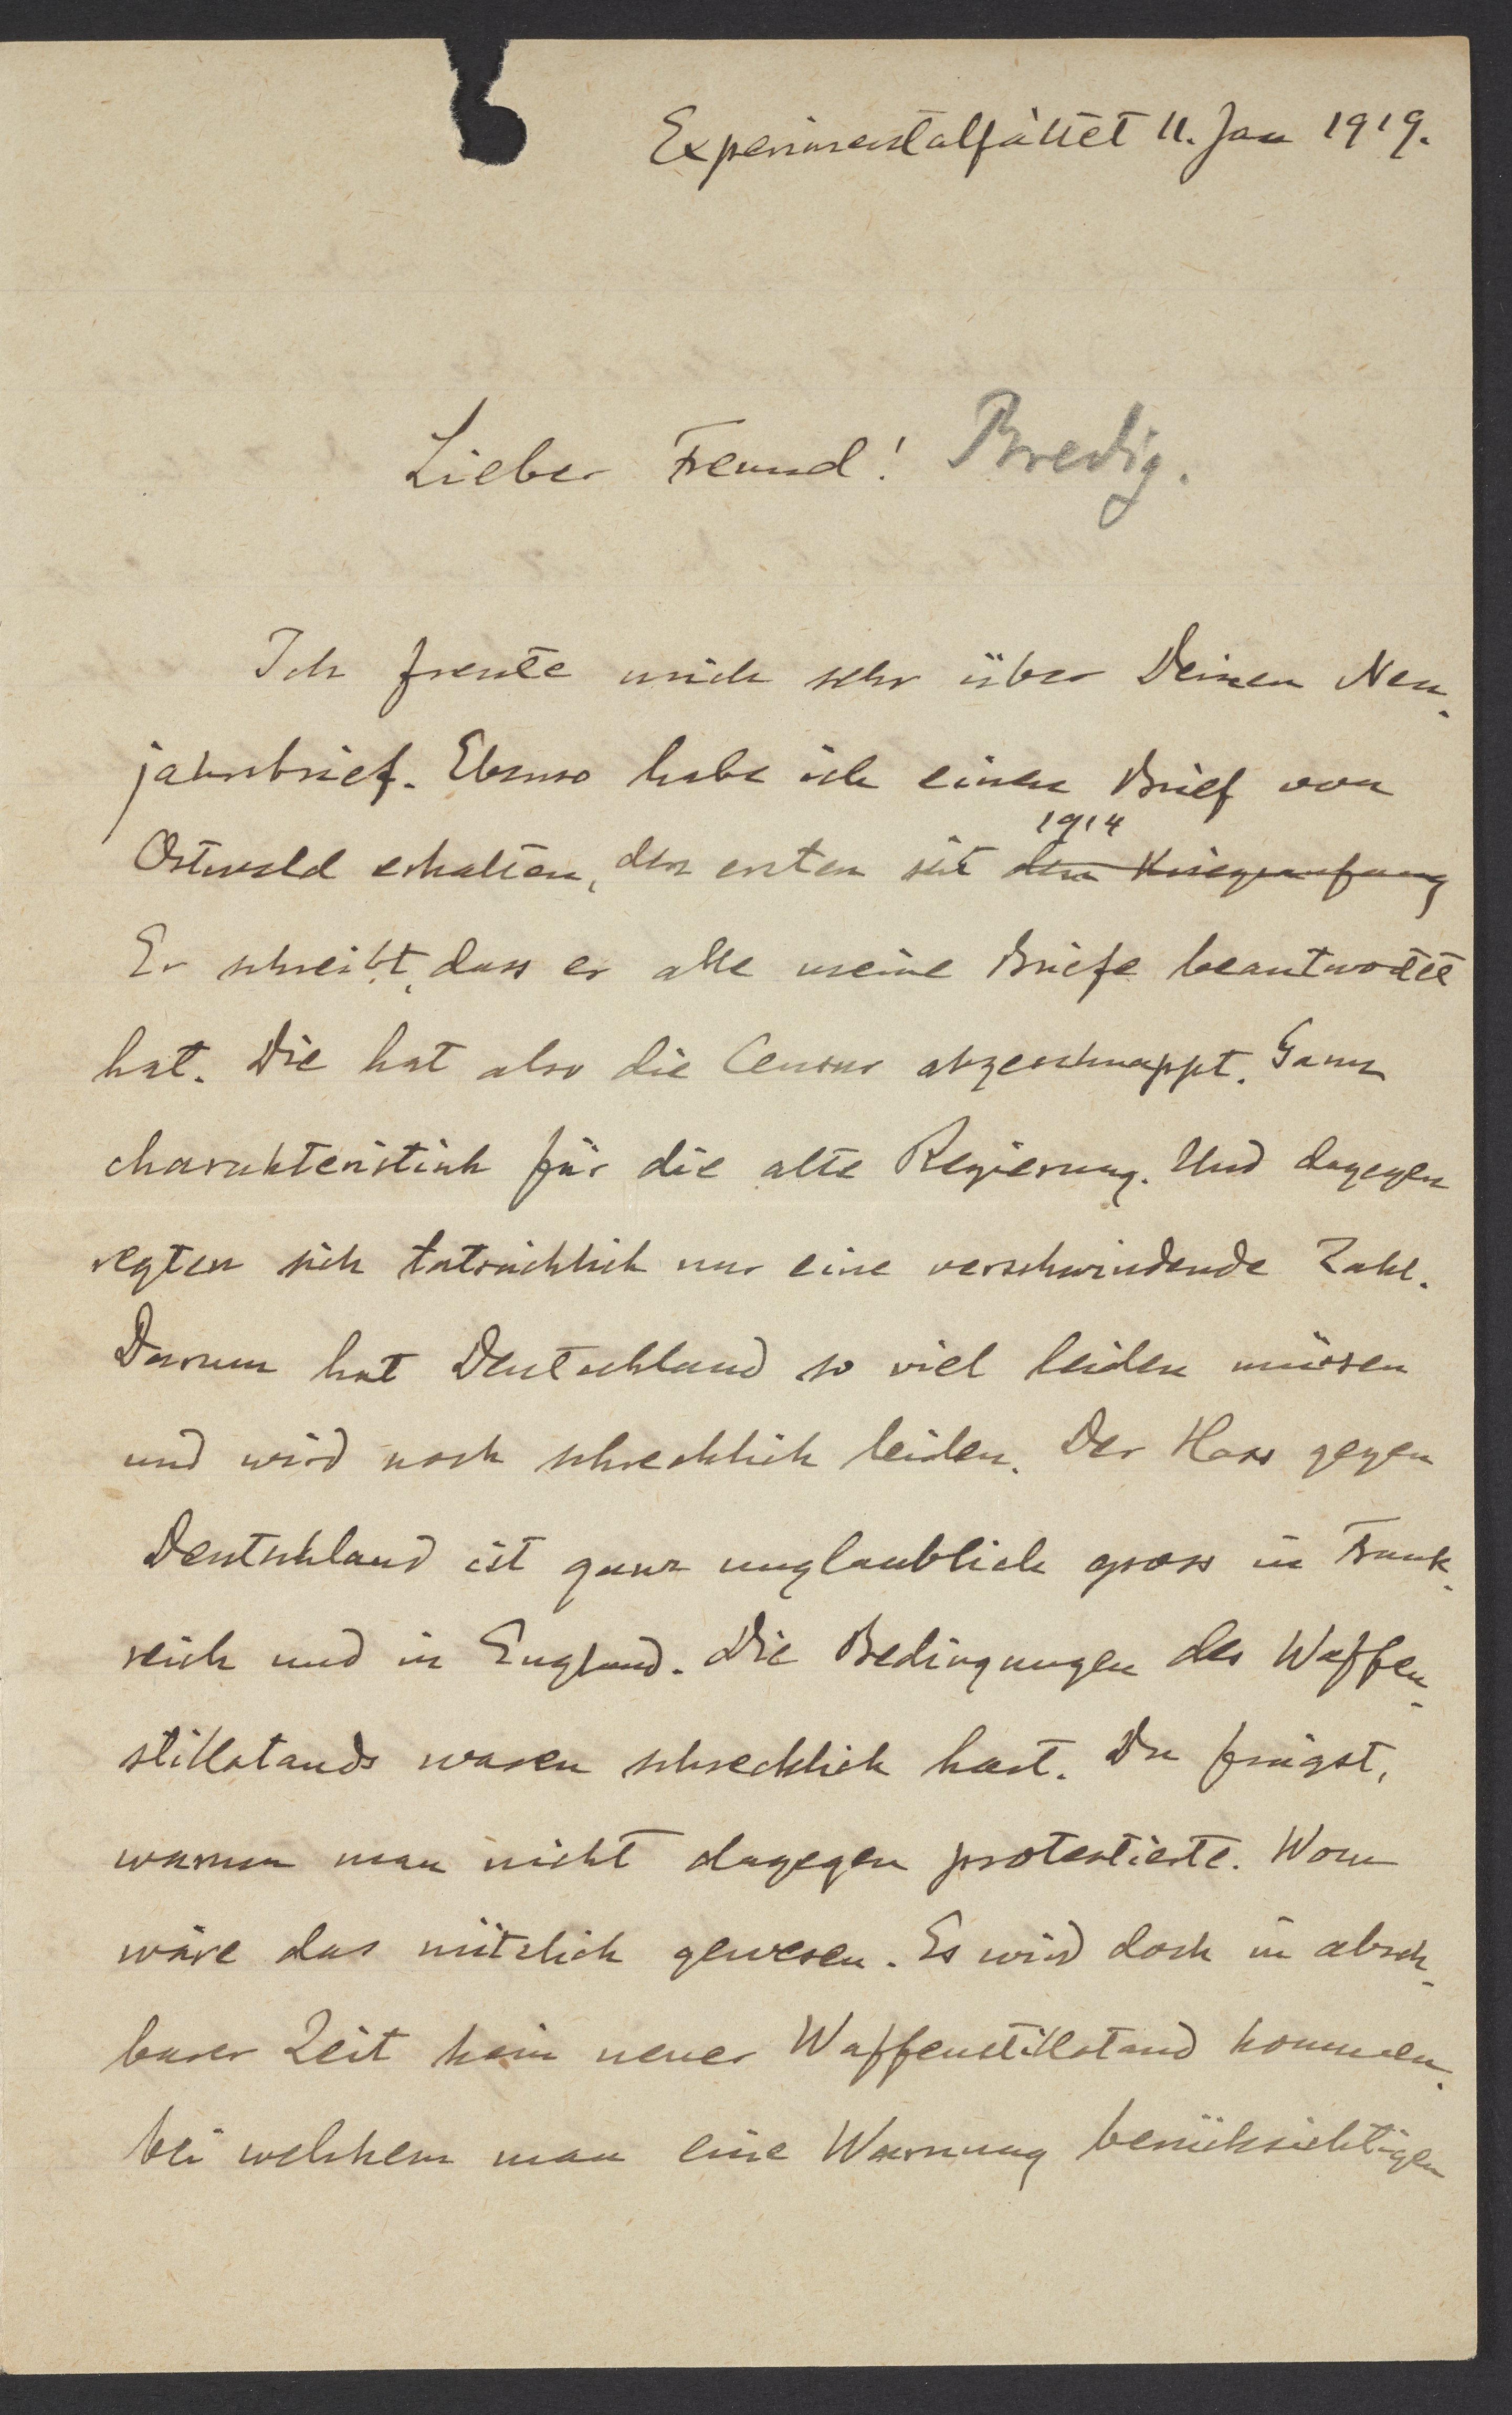 Experimentalfältet 11. Jan 1919.
Lieber Freund! Bredig.
Ich freute mich sehr über Deinen Neu-
jahrsbrief. Ebenso habe ich einen Brief von
1914
Ostwald erhalten, den ersten seit dem Kriegsanfang
Er schreibt, dass er alle meine Briefe beantwortet
hat. Die hat also die Censur abgeschnappt. Ganz
charakteristisch für die alte Regierung. Und dagegen
regten sich tatsächlich nur eine verschwindende Zahl.
Darum hat Deutschland so viel leiden müssen
und wird noch schrecklich leiden. Der Hass gegen
Deutschland ist ganz unglaublich gross in Frank-
reich und in England. Die Bedingungen des Waffen-
stillstands waren schrecklich hart. Du frägst,
warum man nicht dagegen protestierte. Wozu
wäre das nützlich gewesen. Es wird doch in abseh-
barer Zeit kein neuer Waffenstillstand kommen,
bei welchem man eine Warnung berücksichtigen